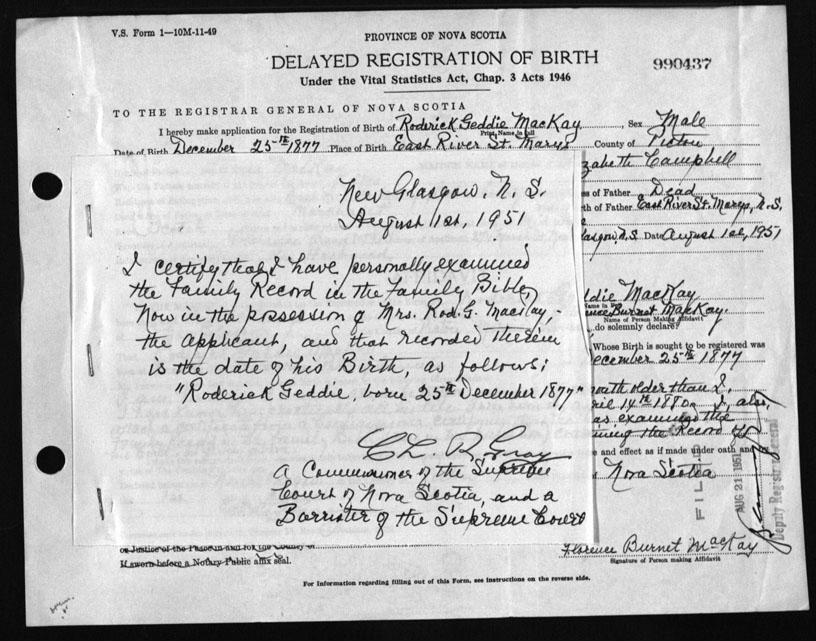 V.S. Form 1—10M-11-49
PROVINCE OF NOVA SCOTIA
DELAYED REGISTRATION OF BIRTH
990437
Under the Vital Statistics Act, Chap. 3 Acts 1946
TO THE REGISTRAR GENERAL OF NOVA SCOTIA
I hereby make application for the Registration of Birth of Roderick Geddie MacKay, Sex Male
Print Name in full
Date of Birth December 25th 1877 Place of Birth East River St. Marys County of Pictou
zabeth Campbell
s of Father Dead
th of Father East River St. Marys, N.S.
lasgow, N.S. Date August 1st, 1951
New Glasgow, N.S.
August 1st, 1951
I certify that I have personally examined
the Family Record in the Family Bible,
now in the possession of Mrs. Rod. G. MacKay,
the applicant, and that recorded therein
is the date of his Birth, as follows:
"Roderick Geddie, born 25th December 1877"
C L. B. Gray
A Commissioner of the Supreme
Court of Nova Scotia, and a
Barrister of the Supreme Court
ddie MacKay
nce Burnet MacKay
Name of Person Making Affidavit
do solemnly declare:
Whose Birth is sought to be registered was
ecember 25th 1877
outh older than I.
ril 14th 1880. I, also,
as examined the
ning the Record of
e and effect as if made under oath and
Nova Scotia
FIL
AUG 21 1951
Deputy Registrar General
or Justice of the Peace in and for the County of
If sworn before a Notary Public affix seal.
Florence Burnet MacKay
Signature of Person making Affidavit
For Information regarding filling out of this Form, see instructions on the reverse side.